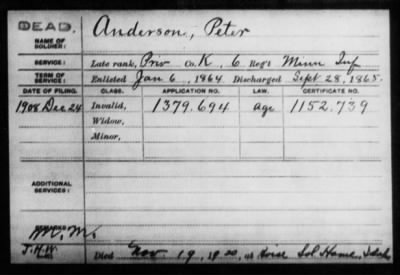 DEAD.
NAME OF SOLDIER: Anderson, Peter
SERVICE: Late rank, Priv Co. K, 6 Reg't Minn Inf
TERM OF SERVICE: Enlisted Jan 6, 1864 Discharged Sept 28, 1865.
DATE OF FILING. CLASS. APPLICATION NO. LAW. CERTIFICATE NO.
1908 Dec 24 Invalid, 1379.694 Age 1152.739
Widow,
Minor,
ADDITIONAL SERVICES:
REMARKS:
J.H.W. Died Nov 19, 1920, at Boise Sol Home, Idaho